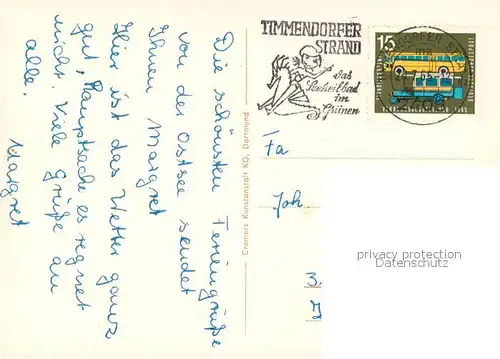 Die schönsten Feriengrüße
von der Ostsee sendet
Ihnen Margret
Hier ist das Wetter ganz
gut, Hauptsache es regnet
nicht. Viele Grüße an
alle.
Margret
Cramers Kunstanstalt KG, Dortmund
TIMMENDORFER
STRAND
das
Seeheilbad
im
Grünen
15
Fa
Joh
privacy protection
Datenschutz